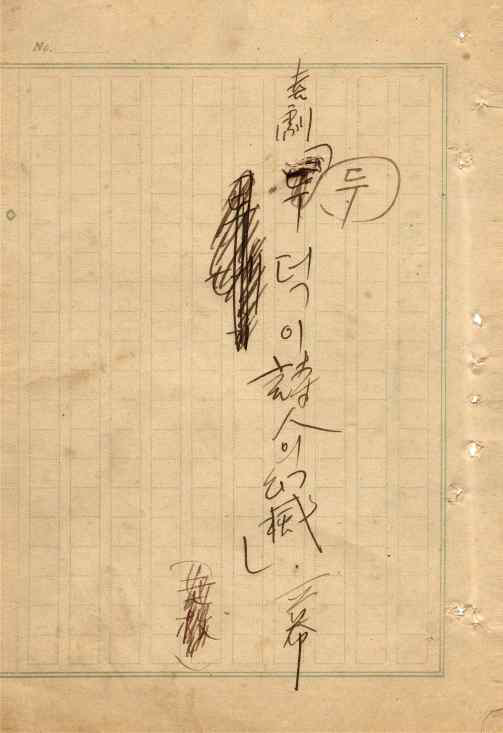 No.
喜劇「두덕이詩人의幻滅」一幕